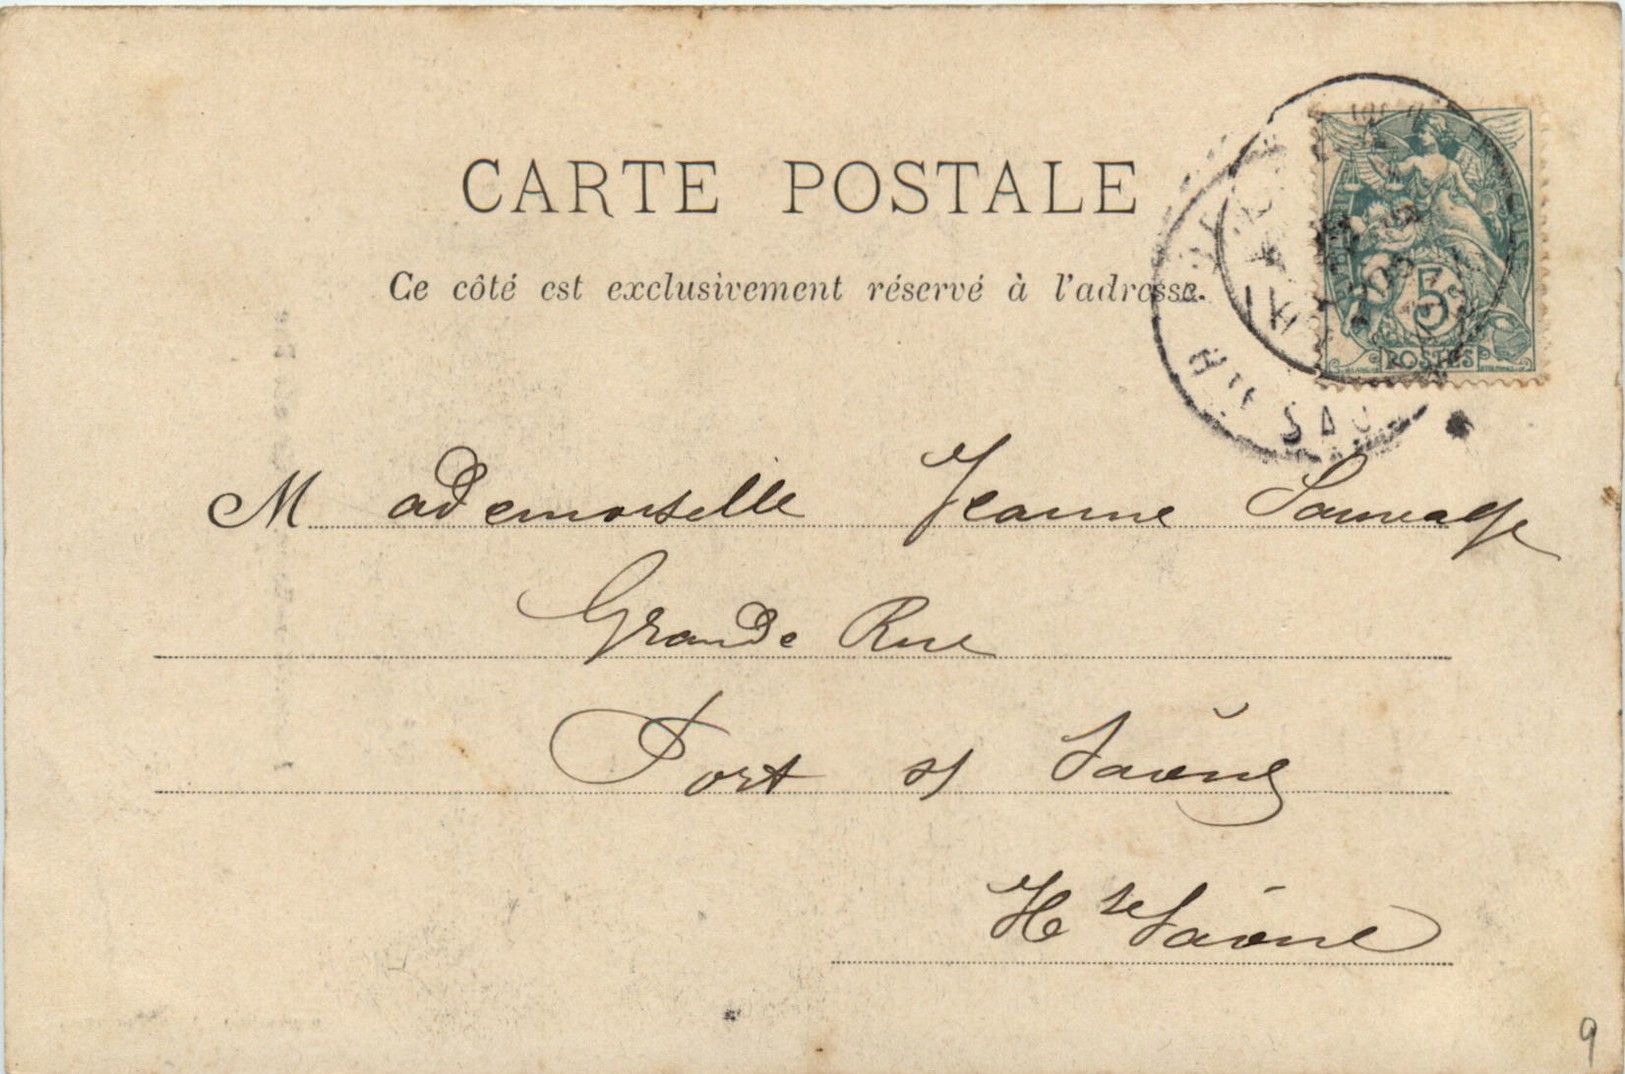 CARTE POSTALE
Ce côté est exclusivement réservé à l'adresse.
5
POSTES
Hte SAÔ
Mademoiselle Jeanne Sauvage
Grande Rue
Port s/ Saône
Hte Saône
9